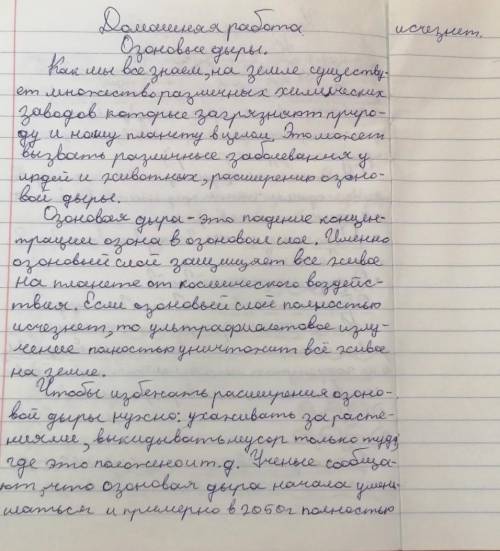 Домашняя работа
Озоновые дыры.
Как мы все знаем, на земле существу-
ет множество различных химических
заводов которые загрязняют приро-
ду и нашу планету в целом. Это может
вызвать различные заболевания у
людей и животных, расширению озоно-
вой дыры.
Озоновая дыра - это падение концен-
трации озона в озоновом слое. Именно
озоновый слой защищяет все живое
на планете от космического воздейс-
твия. Если озоновый слой полностью
исчезнет, то ультрафиолетовое излу-
чение полностью уничтожит всё живое
на земле.
Чтобы избежать расширения озоно-
вой дыры нужно: ухаживать за расте-
ниями, выкидывать мусор только туда
где это положено и т.д. Ученые сообща-
ют, что озоновая дыра начала умень-
шаться и примерно в 2050г полностью
исчезнет.